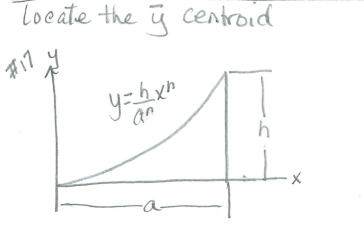 Locate the ȳ centroid
#17 y
y = h/aⁿ xⁿ
h
x
a